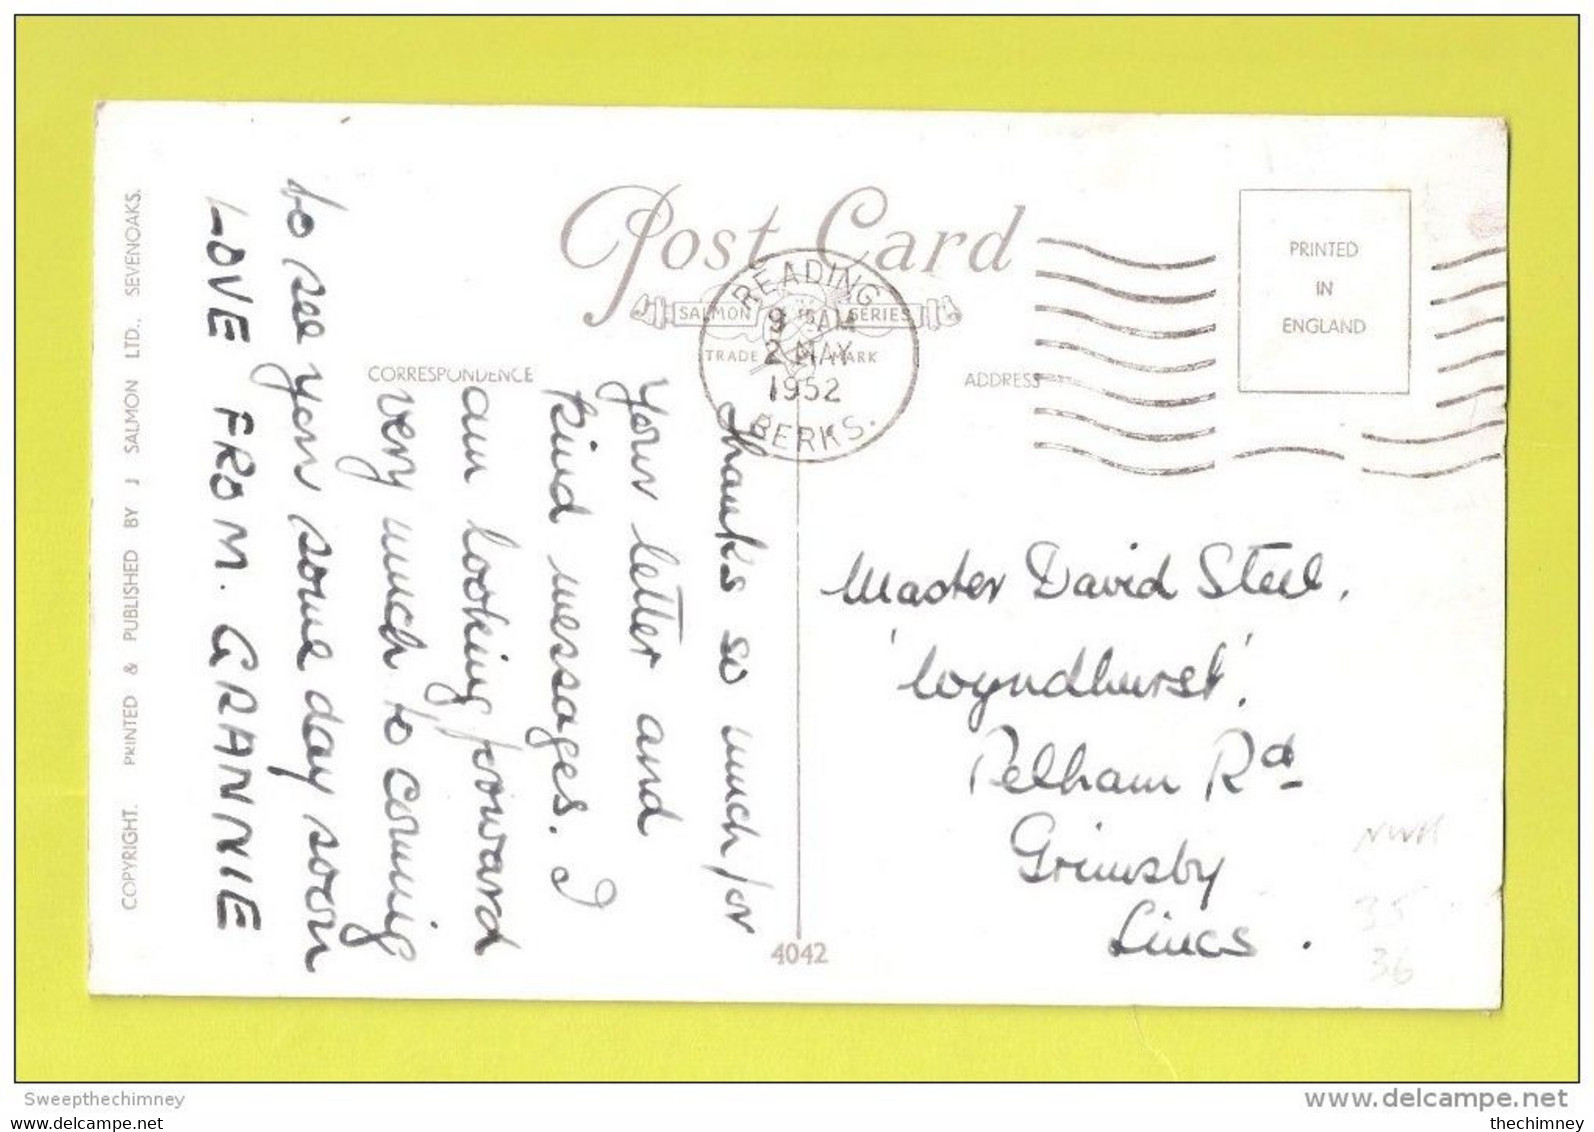 Post Card
SALMON SERIES
TRADE MARK
READING
9 15 AM
2 MAY
1952
BERKS.
PRINTED
IN
ENGLAND
CORRESPONDENCE
ADDRESS
Thanks so much for
your letter and
kind messages. I
am looking forward
very much to coming
to see you some day soon
LOVE FROM. GRANNIE
Master David Steel,
'Wyndhurst',
Pelham Rd
Grimsby
Lincs.
35
36
4042
COPYRIGHT. PRINTED & PUBLISHED BY J SALMON LTD., SEVENOAKS.
Sweepthechimney
www.delcampe.net
thechimney
thechimney